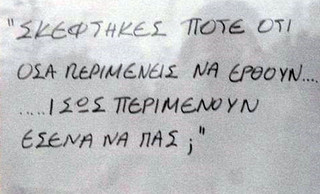 "ΣΚΕΦΤΗΚΕΣ ΠΟΤΕ ΟΤΙ
ΟΣΑ ΠΕΡΙΜΕΝΕΙΣ ΝΑ ΕΡΘΟΥΝ....
.....ΙΣΩΣ ΠΕΡΙΜΕΝΟΥΝ
ΕΣΕΝΑ ΝΑ ΠΑΣ ;"